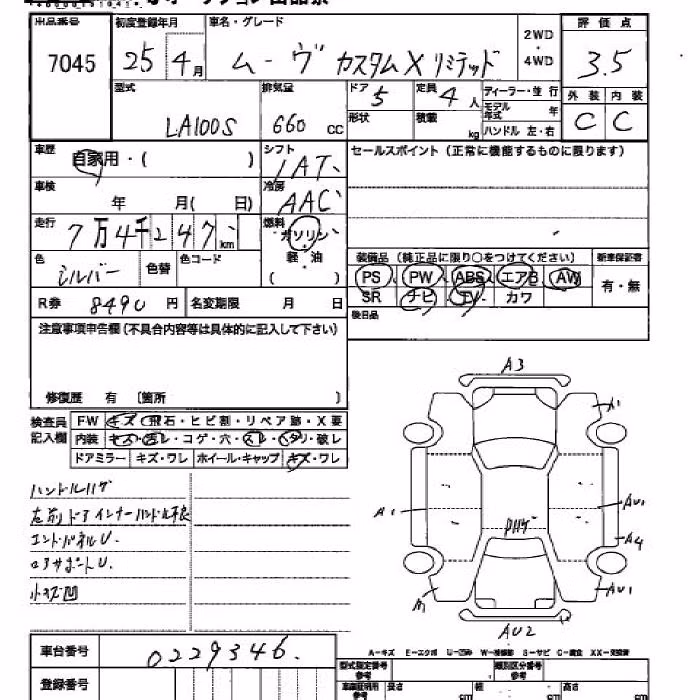 出品番号 初度登録年月 車名・グレード 2WD・4WD 評価点
7045 25 4月 ムーヴ カスタムX リミテッド 3.5
型式 排気量 ドア 5 定員 4人 ディーラー・並行 外装 内装
LA100S 660 cc 形状 積載 kg モデル年式 年 C C
ハンドル 左・右
車歴 自家用・( ) シフト IAT セールスポイント(正常に機能するものに限ります)
車検 年 月( 日) 冷房 AAC
走行 7万4千247km 燃料 ガソリン・軽・油 ( )
色 シルバー 色替 色コード 装備品(純正品に限り○をつけてください) 新車保証書
PS PW ABS エアB AW 有・無
R券 8490円 名変期限 月 日 SR ナビ TV カワ
後日品
注意事項申告欄(不具合内容等は具体的に記入して下さい)
修復歴 有 〔箇所 〕
検査員記入欄 FW キズ・飛石・ヒビ割・リペア跡・X要
内装 キズ・汚レ・コゲ・穴・スレ・ヘタリ・破レ
ドアミラー キズ・ワレ ホイール・キャップ キズ・ワレ
ハンドルハゲ
左前ドアインナーハンドル不良
エンドパネルU.
コアサポートU.
小キズ凹
A3
A1
A1
AU1
Pハゲ
A4
AU1
A1
AU2
車台番号 0229346.
登録番号
A-キズ E-エクボ U-凹み W-補修跡 S-サビ C-腐食 XX-交換済
型式指定番号 参考 類別区分番号 参考
長さ cm 幅 cm 高さ cm